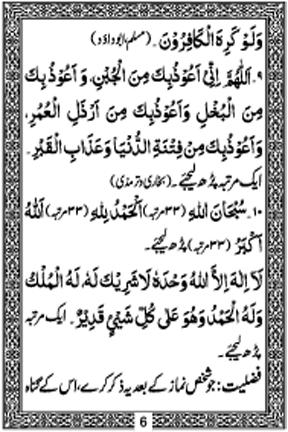 وَلَوْ كَرِهَ الْكَافِرُوْنَ۔ (مسلم، ابوداؤد)
۹۔ اَللّٰهُمَّ اِنِّىْ اَعُوْذُبِكَ مِنَ الْجُبْنِ، وَ اَعُوْذُبِكَ
مِنَ الْبُخْلِ وَاَعُوْذُبِكَ مِنْ اَرْذَلِ الْعُمُرِ،
وَاَعُوْذُبِكَ مِنْ فِتْنَةِ الدُّنْيَا وَعَذَابِ الْقَبْرِ۔
ایک مرتبہ پڑھ لیجئے۔ (بخاری و ترمذی)
۱۰۔ سُبْحَانَ اللهِ (۳۳ مرتبہ) اَلْحَمْدُ لِلّٰهِ (۳۳ مرتبہ) اَللهُ
اَكْبَرُ (۳۳ مرتبہ) پڑھ لیجئے۔
لَا اِلٰهَ اِلَّا اللهُ وَحْدَهٗ لَا شَرِيْكَ لَهٗ، لَهُ الْمُلْكُ
وَلَهُ الْحَمْدُ وَهُوَ عَلٰى كُلِّ شَيْئٍ قَدِيْرٌ۔ ایک مرتبہ
پڑھ لیجئے۔
فضلیت: جو شخص نماز کے بعد یہ ذکر کرے، اس کے گناہ
6